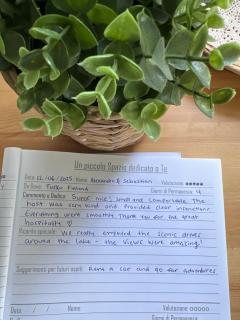 Un piccolo Spazio dedicato a Te
Data 12/06/2025 Nome Alexandra & Sebastian Valutazione
Da dove Turku Finland Giorni di Permanenza
Commento o Dedica: Super nice, small and comfortable. The 4
host was very kind and provided clear instructions
Everything went smoothly. Thank you for the great
hospitality ♡
Ricordo speciale: We really enjoyed the scenic drives
around the lake - the views were amazing!
Suggerimenti per futuri ospiti: Rent a car and go for adventures
Data / / Nome Valutazione
Da dove Giorni di Permanenza